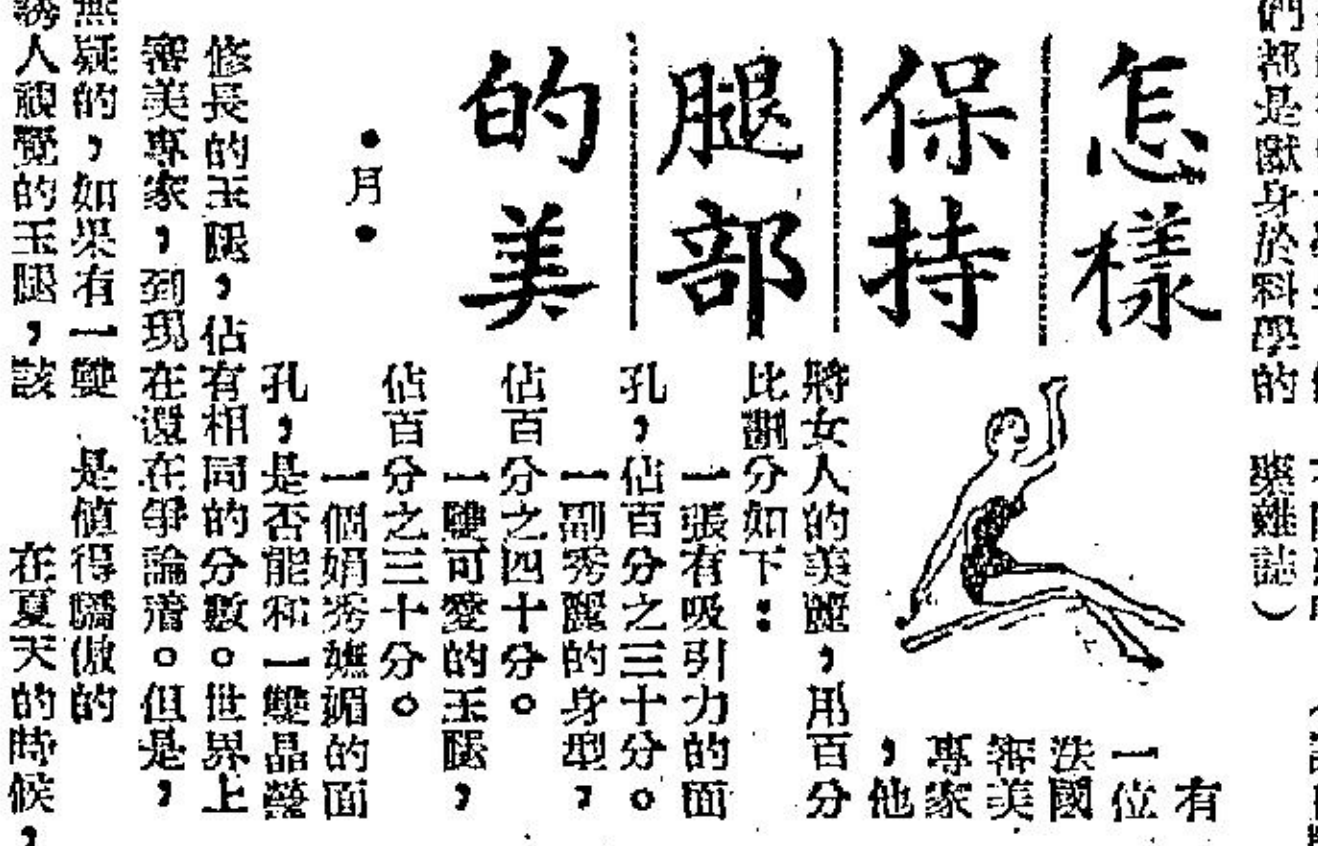 們都是獻身於科學的
樂雜誌）
怎樣
保持
腿部
的美
•月•
有
一位
法國
審美
專家
，他
將女人的美麗，用百分
比劃分如下：
一張有吸引力的面
孔，佔百分之三十分。
一副秀麗的身型，
佔百分之四十分。
一雙可愛的玉腿，
佔百分之三十分。
一個娟秀嫵媚的面
孔，是否能和一雙晶瑩
修長的玉腿，佔有相同的分數。世界上
審美專家，到現在還在爭論着。但是，
無疑的，如果有一雙
誘人視覺的玉腿，該
是值得驕傲的
在夏天的時候，